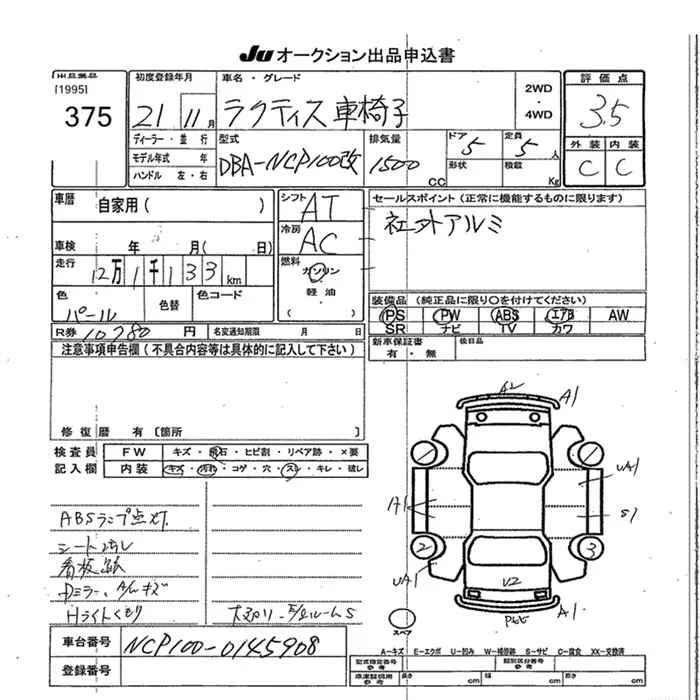 Ju オークション出品申込書
出品番号 初度登録年月 車名・グレード 2WD・4WD 評価点
[1995] 375 21 11月 ラクティス 車椅子 3.5
ディーラー・並行 型式 排気量 ドア 5 定員 5人 外装 内装
モデル年式 年 DBA-NCP100改 1500cc 形状 積載 Kg C C
ハンドル 左・右
車歴 自家用( ) シフト AT セールスポイント(正常に機能するものに限ります)
冷房 AC 社外アルミ
車検 年 月( 日)
走行 12万1千133km 燃料 ガソリン・軽油
色 パール 色替 色コード 装備品(純正品に限り○を付けてください)
PS PW ABS エアB AW
R券 10780円 名変通知期限 月 日 SR ナビ TV カワ
注意事項申告欄(不具合内容等は具体的に記入して下さい) 新車保証書 有・無 後日品
修復歴 有[箇所 ]
検査員 FW キズ・飛石・ヒビ割・リペア跡・×要
記入欄 内装 キズ・汚れ・コゲ・穴・スレ・キレ・破レ
A2 A1
UA1
A1 S1
2 3
UA1 V2 A1
スペア
ABSランプ点灯
看板紙
Dミラー、A/Wキズ
Hライトくもり
車台番号 NCP100-0145908
登録番号
A-キズ E-エクボ U-凹み W-補修跡 S-サビ C-腐食 XX-交換済
型式指定番号 参考 類別区分番号 参考
車庫証明用 参考 長さ cm 幅 cm 高さ cm